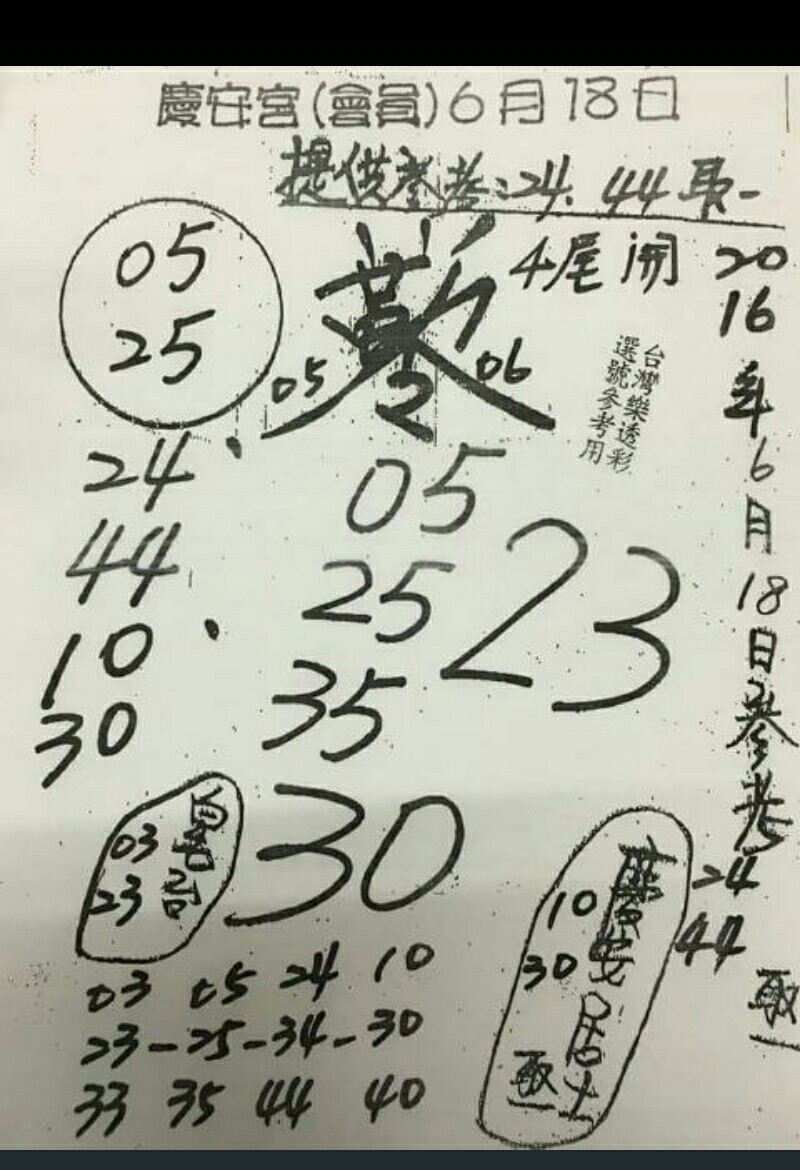 慶安宮(會員)6月18日
提供參考:24. 44取一
4尾開
05
25
05
06
台灣樂透彩
選號參考用
2016年6月18日參考
24
44
取一
24
44
10
30
05
25
35
23
30
03
23
10
30
慶安居士
取一
03 05 24 10
23-25-34-30
33 35 44 40